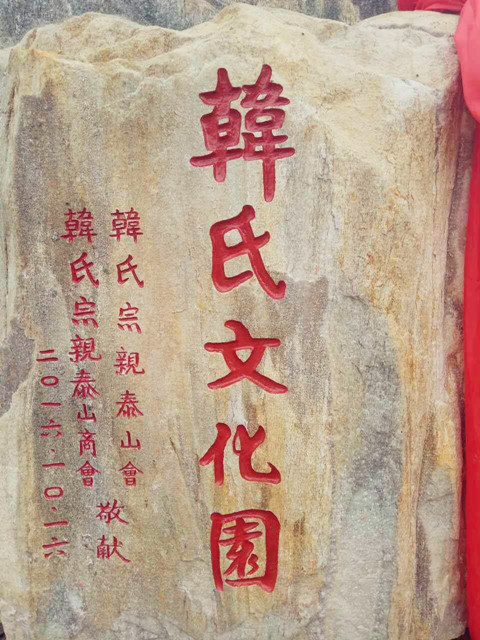 韓氏文化園
韓氏宗親泰山會
韓氏宗親泰山商會
敬献
二〇一六·一〇·一六